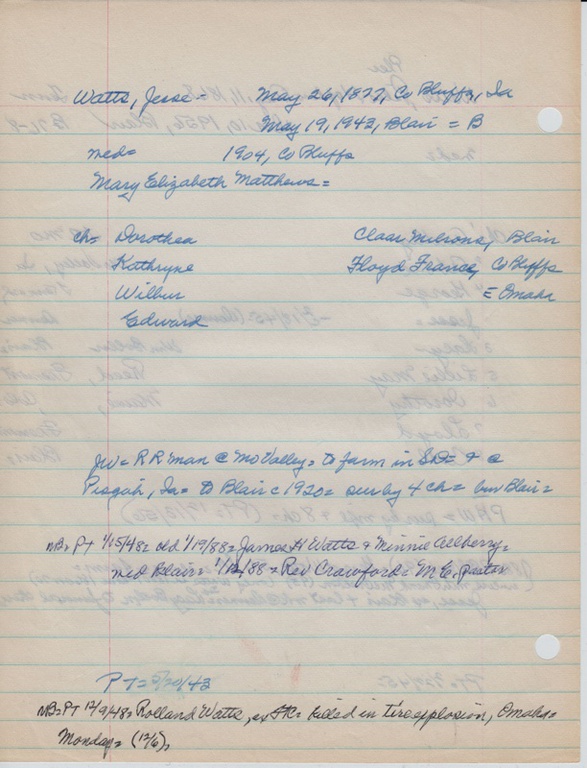 Watts, Jesse - May 26, 1877, Co Bluffs, Ia
May 19, 1943, Blair = B
med= 1904, Co Bluffs
Mary Elizabeth Matthews =
ch= Dorothea Claar Milsone, Blair
Kathryne Floyd France, Co Bluffs
Wilbur = Omaha
Edward
JW = RR man @ Mo Valley = to farm in SD = + @
Pisgah, Ia = to Blair c 1920 = sur by 4 ch = bur Blair =
NB = PT 1/15/48 = old 1/19/88 = James H Watts + Minnie Allberry =
med Blair = 88 = Rev Crawford = M.E. pastor
PT = 5/20/43
NB = PT 12/9/48 = Rolland Watts, killed in tire explosion, Omaha =
Monday = (12/6) =